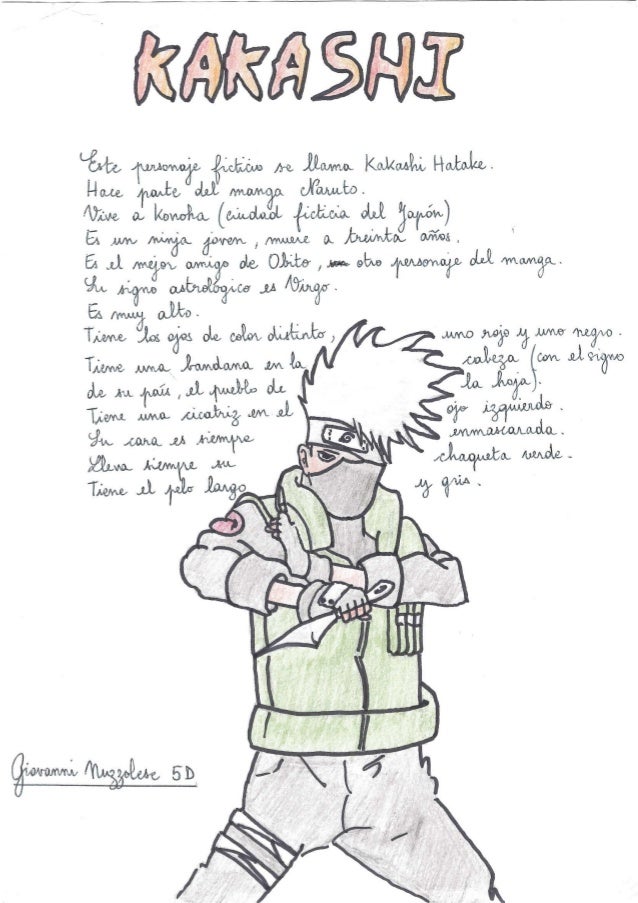 KAKASHI
Este personaje ficticio se llama Kakashi Hatake.
Hace parte del manga Naruto.
Vive a Konoha (ciudad ficticia del Japón)
Es un ninja joven, muere a treinta años.
Es el mejor amigo de Obito, otro personaje del manga.
Su signo astrológico es Virgo.
Es muy alto.
Tiene los ojos de color distinto, uno rojo y uno negro.
Tiene una bandana en la cabeza (con el signo
de su país, el pueblo de la hoja).
Tiene una cicatriz en el ojo izquierdo.
Su cara es siempre enmascarada.
Lleva siempre su chaqueta verde.
Tiene el pelo largo y gris.
Giovanni Nuzzolese 5D